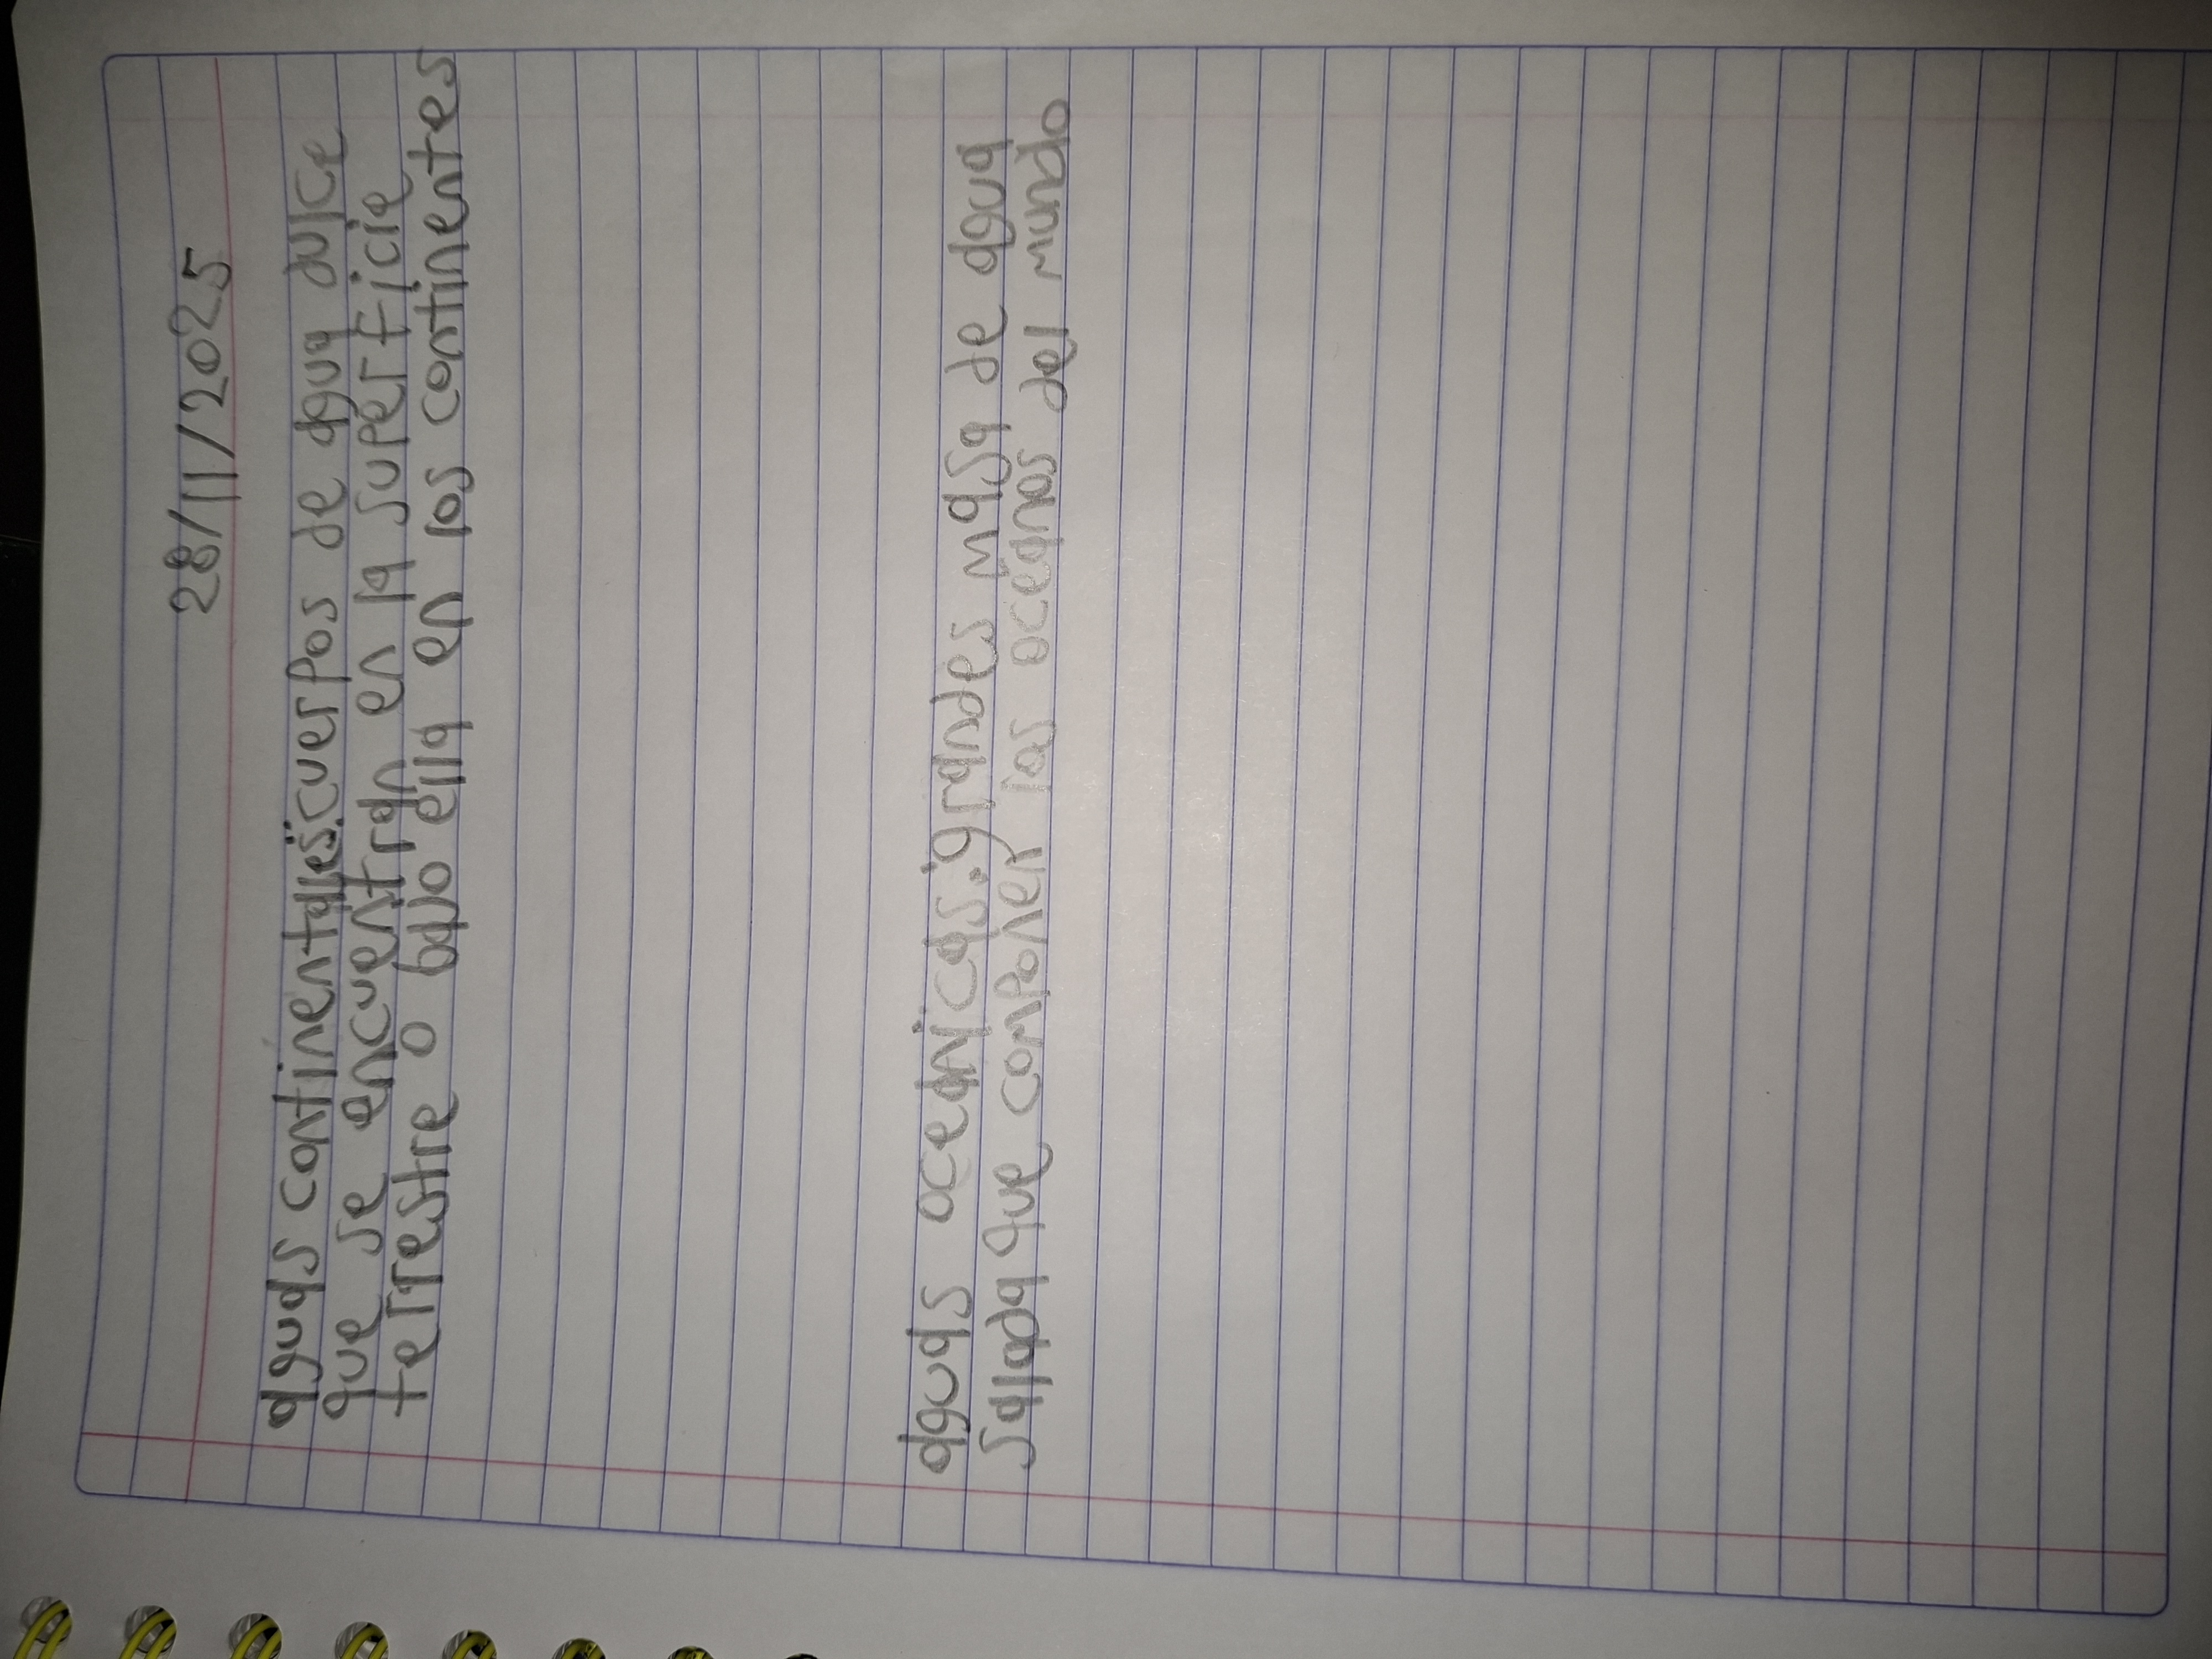 28/11/2025
aguas continentales:cuerpos de agua dulce
que se encuentran en la superficie
terrestre o bajo ella en los continentes
aguas oceanicas:grandes masa de agua
salada que componen los oceanos del mundo